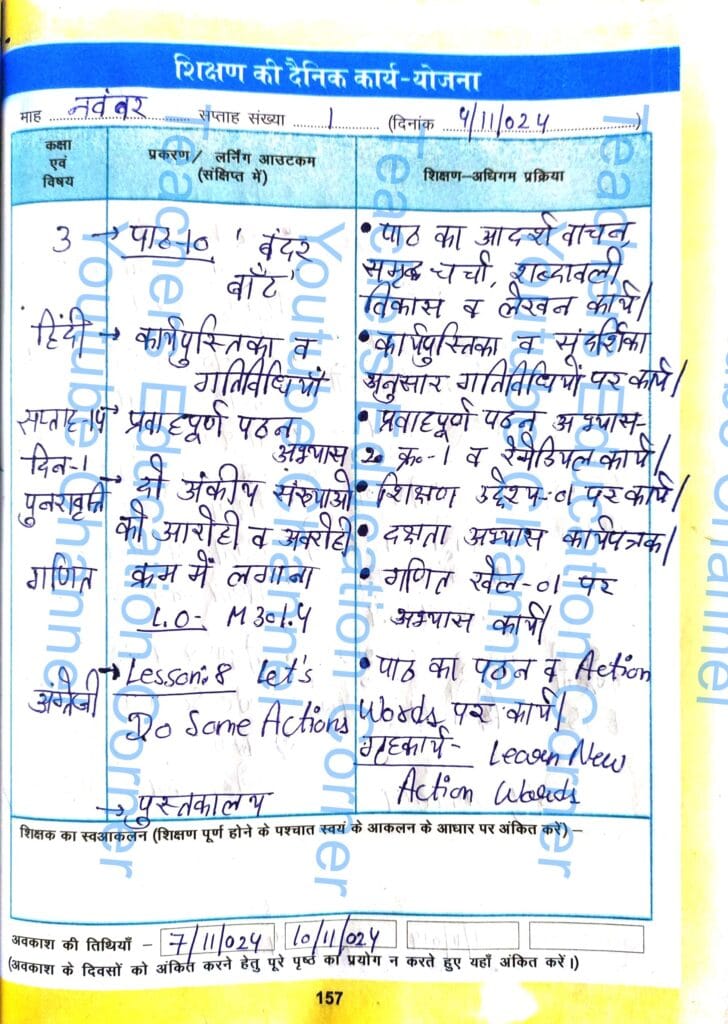 शिक्षण की दैनिक कार्य-योजना
माह नवंबर सप्ताह संख्या 1 (दिनांक 4/11/024)
कक्षा एवं विषय
प्रकरण/ लर्निंग आउटकम (संक्षिप्त में)
शिक्षण-अधिगम प्रक्रिया
3 → पाठ-10 'बंदर
बाँट'
• पाठ का आदर्श वाचन,
समूह चर्चा, शब्दावली
विकास व लेखन कार्य।
हिंदी → कार्यपुस्तिका व
गतिविधियाँ
• कार्यपुस्तिका व संदर्शिका
अनुसार गतिविधियों पर कार्य।
सप्ताह-14 → प्रवाहपूर्ण पठन
दिन-1 अभ्यास
• प्रवाहपूर्ण पठन अभ्यास-
क्र०-1 व रेमेडियल कार्य।
पुनरावृत्ति → दो अंकीय संख्याओं
को आरोही व अवरोही
गणित क्रम में लगाना
L.O- M301.4
• शिक्षण उद्देश्य-01 पर कार्य।
• दक्षता अभ्यास कार्यपत्रक।
• गणित खेल-01 पर
अभ्यास कार्य।
अंग्रेजी → Lesson:8 Let's
Do Some Actions
• पाठ का पठन व Action
Words पर कार्य।
गृहकार्य- Learn New
Action Words
→ पुस्तकालय
शिक्षक का स्वआकलन (शिक्षण पूर्ण होने के पश्चात स्वयं के आकलन के आधार पर अंकित करें) –
अवकाश की तिथियाँ – 7/11/024 10/11/024
(अवकाश के दिवसों को अंकित करने हेतु पूरे पृष्ठ का प्रयोग न करते हुए यहाँ अंकित करें।)
157
Teachers Education Corner
Youtube Channel
Teachers Education Corner
Youtube Channel
Teachers Education Corner